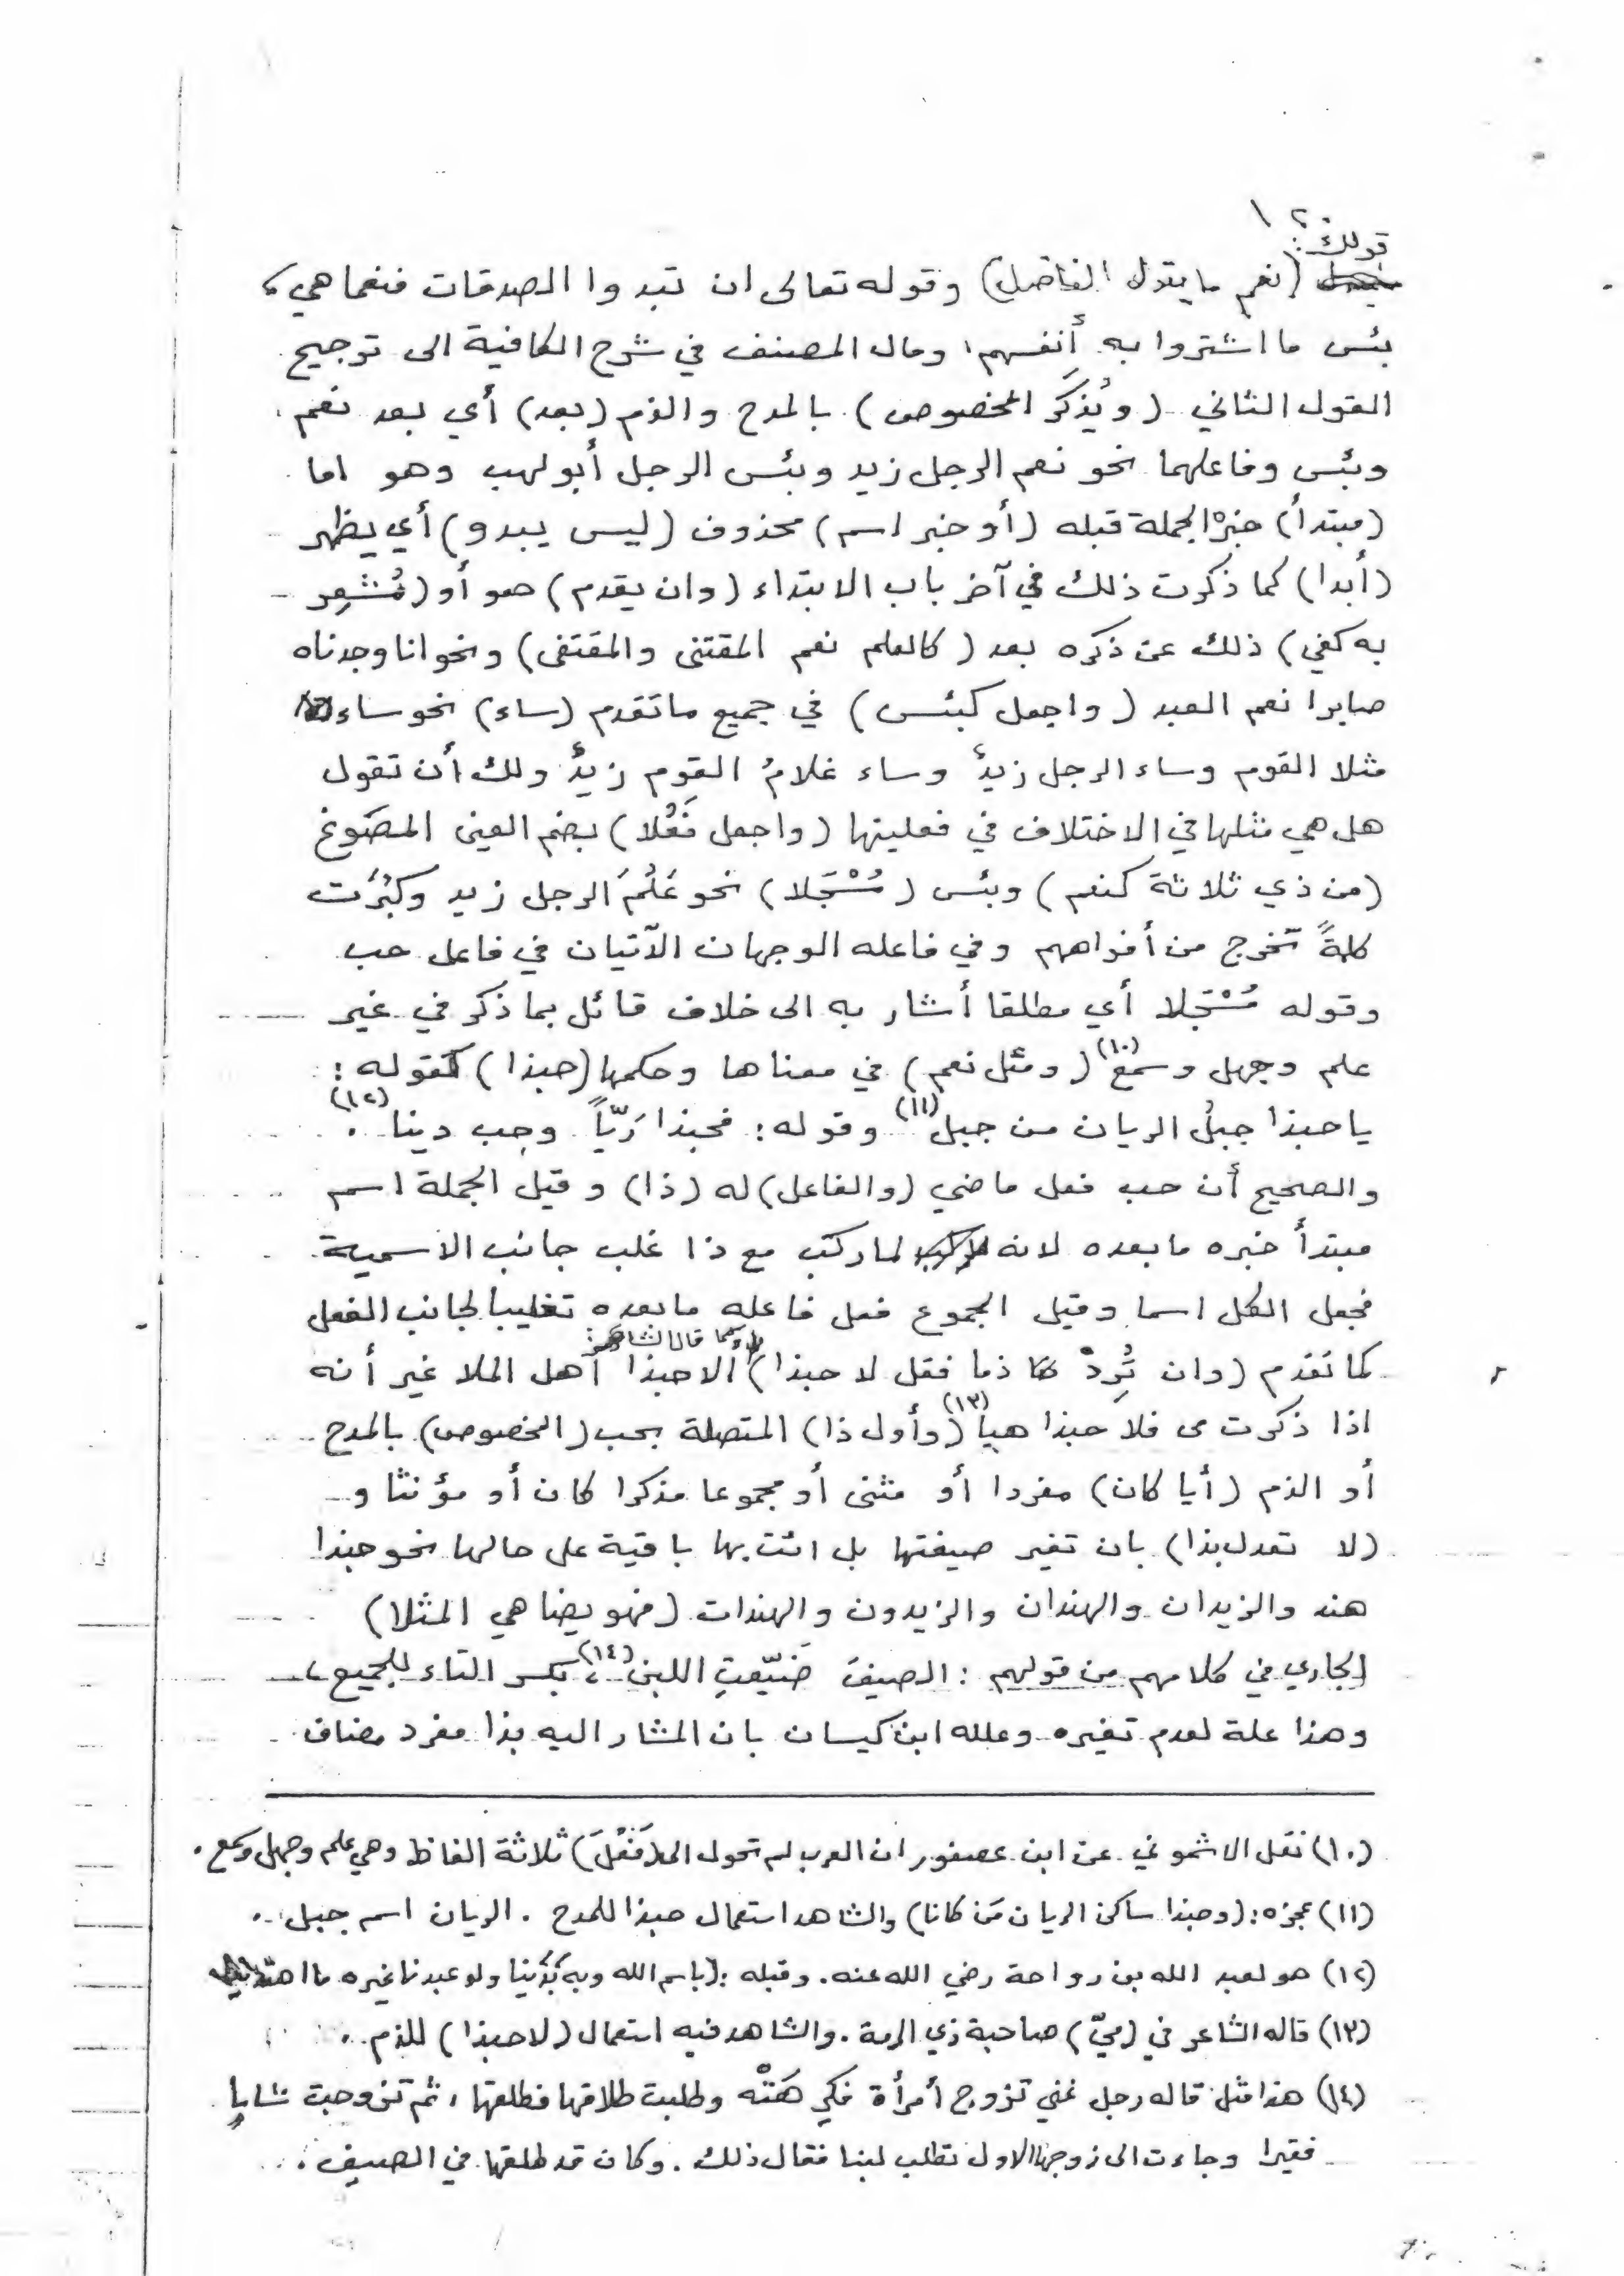 قولك:
(نعم ما يقول الفاضل) وقوله تعالى ان تبدوا الصدقات فنعما هي،
بئس ما اشتروا به أنفسهم، ومال المصنف في شرح الكافية الى ترجيح
القول الثاني (ويُذكَر المخصوص) بالمدح والذم (بعد) أي بعد نعم
وبئس وفاعلهما نحو نعم الرجل زيد وبئس الرجل أبو لهب وهو اما
(مبتدأ) خبره الجملة قبله (أو خبر اسم) محذوف (ليس يبدو) أي يظهر
(أبدا) كما ذكرت ذلك في آخر باب الابتداء (وان يقدم) هو أو (مُشعِر
به كفى) ذلك عن ذكره بعد (كالعلم نعم المقتنى والمقتفى) ونحو انا وجدناه
صابرا نعم العبد (واجعل كبئس) في جميع ما تقدم (ساء) نحو ساء
مثلا القوم وساء الرجل زيدٌ وساء غلامُ القوم زيدٌ ولك أن تقول
هل هي مثلها في الاختلاف في فعليتها (واجعل فَعُلا) بضم العين المصَوغ
(من ذي ثلاثة كنعم) وبئس (مُسْجَلا) نحو عَلُمَ الرجل زيد وكَبُرَت
كلمةً تخرج من أفواههم وفي فاعله الوجهان الآتيان في فاعل حب
وقوله مُسْجَلا أي مطلقا أشار به الى خلاف قائل بما ذكر في غير
علم وجهل وسمع (١٠) (ومثل نعم) في معناها وحكمها (حبذا) كقوله:
يا حبذا جبلُ الريان من جبل (١١) وقوله: فحبذا رَبّاً وحب دينا (١٢).
والصحيح أن حب فعل ماضي (والفاعل) له (ذا) وقيل الجملة اسم
مبتدأ خبره ما بعده لانه لما ركب مع ذا غلب جانب الاسمية
فجعل الكل اسما وقيل المجموع فعل فاعله ما بعده تغليبا لجانب الفعل
كما تقدم (وان تُرِدْ ذما فقل لا حبذا) كما قال الشاعر: ألا حبذا أهل الملا غير أنه
اذا ذكرت مى فلا حبذا هيا (١٣) (وأول ذا) المتصلة بحب (المخصوص) بالمدح
أو الذم (أيا كان) مفردا أو مثنى أو مجموعا مذكرا كان أو مؤنثا و
(لا تعدل بذا) بان تغير صيغتها بل ائت بها باقية على حالها نحو حبذا
هند والزيدان والهندان والزيدون والهندات (فهو يضاهي المثلا)
الجاري في كلامهم من قولهم: الصيفَ ضَيّعتِ اللبن (١٤)، بكسر التاء للجميع،
وهذا علة لعدم تغيره وعلله ابن كيسان بان المشار اليه بذا مفرد مضاف
(١٠) نقل الاشموني عن ابن عصفور ان العرب لم تحول الى (فَعُلَ) ثلاثة الفاظ وهي علم وجهل وسمع.
(١١) عجزه: (وحبذا ساكن الريان مَن كانا) والشاهد استعمال حبذا للمدح. الريان اسم جبل.
(١٢) هو لعبد الله بن رواحة رضي الله عنه. وقبله: (باسم الله وبه بَدَينا ولو عبدنا غيره ما اهتدينا
(١٣) قاله الشاعر في (ميّ) صاحبة ذي الرمة. والشاهد فيه استعمال (لا حبذا) للذم.
(١٤) هذا مثل قاله رجل غني تزوج أمرأة فكرِهَتْه وطلبت طلاقها فطلقها، ثم تزوجت شابا
فقيرا وجاءت الى زوجها الاول تطلب لبنا فقال ذلك. وكان قد طلقها في الصيف.